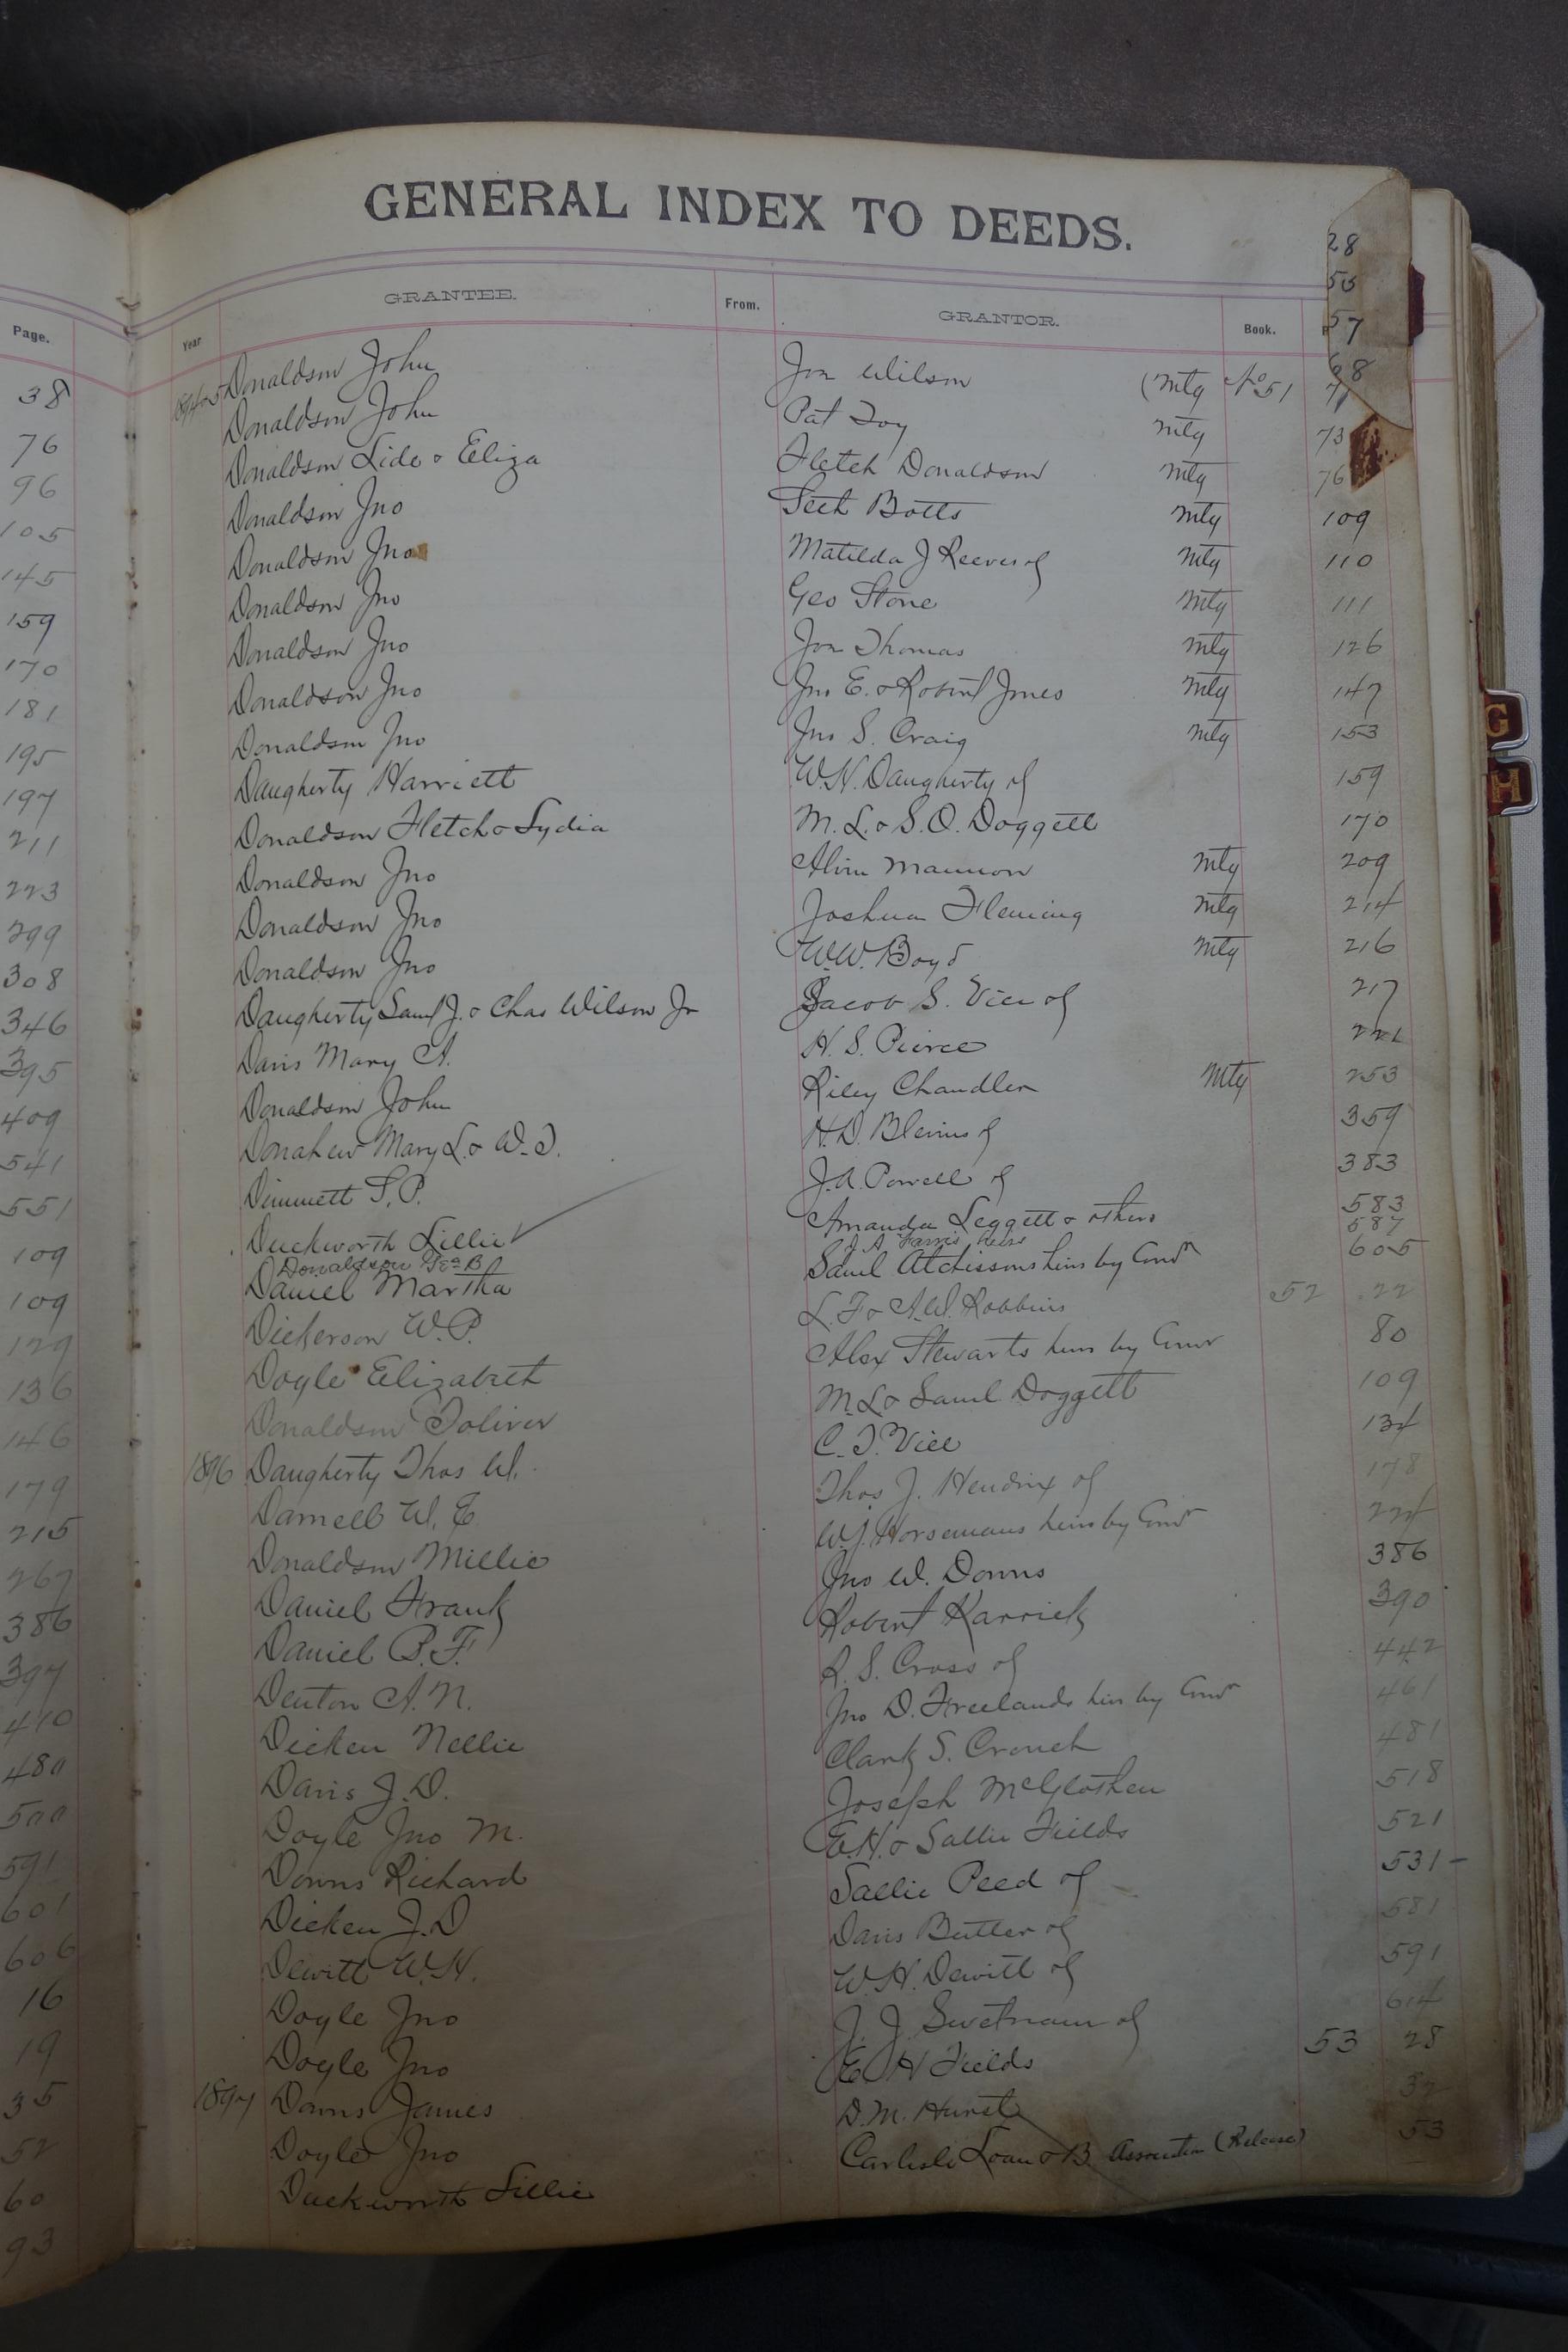 GENERAL INDEX TO DEEDS.
Page.
Year GRANTEE. From. GRANTOR. Book.
28
55
57
68
38
76
96
105
145
159
170
181
195
197
211
223
299
308
346
395
409
541
551
109
109
129
136
146
179
215
267
386
397
410
480
500
591
601
606
16
19
35
52
60
93
Donaldson John Jon Wilson (mtg No 51 71
Donaldson John Pat Toy mtg 73
Donaldson Lide & Eliza Fletch Donaldson mtg 76
Donaldson Jno Seth Botts mtg 109
Donaldson Jno Matilda J Reeves of mtg 110
Donaldson Jno Geo Stone mtg 111
Donaldson Jno Jon Thomas mtg 126
Donaldson Jno Jno E. & Robert Jones mtg 147
Donaldson Jno Jno S. Craig mtg 153
Daugherty Harriett W.H. Daugherty of 159
Donaldson Fletch & Lydia M. L. & S. O. Doggett 170
Donaldson Jno Alvin Mannon mtg 209
Donaldson Jno Joshua Fleming mtg 214
Donaldson Jno W.W. Boyd mtg 216
Daugherty Saml J. & Chas Wilson Jr Jacob S. Vice of 217
Davis Mary A. H. S. Pierce 221
Donaldson John Riley Chandler mtg 253
Donahew Mary L. & W. T. H.D. Blevins of 359
Dimmett S. P. J.A. Powell of 383
Duckworth Lillie Amanda Leggett & others 583
Donaldson Geo B J A Farris heirs 587
Daniel Martha Saml Atchissons heirs by Comr 605
Dickerson W. P. L. F & A.W. Robbins 52 22
Doyle Elizabeth Alex Stewarts heirs by Comr 80
Donaldson Toliver M. L & Saml Doggett 109
1896 Daugherty Thos W. C. T. Vice 134
Darnell W. E Thos J. Hendrix of 178
Donaldson Millie W.J. Horsemans heirs by Comr 224
Daniel Frank Jno W. Downs 386
Daniel B. F. Robert Karrick 390
Denton A. N. R. S. Cross of 442
Dicken Nellie Jno D. Freelands heirs by Comr 461
Davis J. D. Clark S. Crouch 481
Doyle Jno M. Joseph McGlothen 518
Downs Richard E.H. & Sallie Fields 521
Dicken J. D Sallie Peed of 531
Dewitt W. H. Davis Butler of 581
Doyle Jno W.H. Dewitt of 591
Doyle Jno J. J. Swetnam of 614
1897 Downs James E H Fields 53 28
Doyle Jno D. M. Hurst 32
Duckworth Lillie Carlisle Loan & B Association (Release) 53